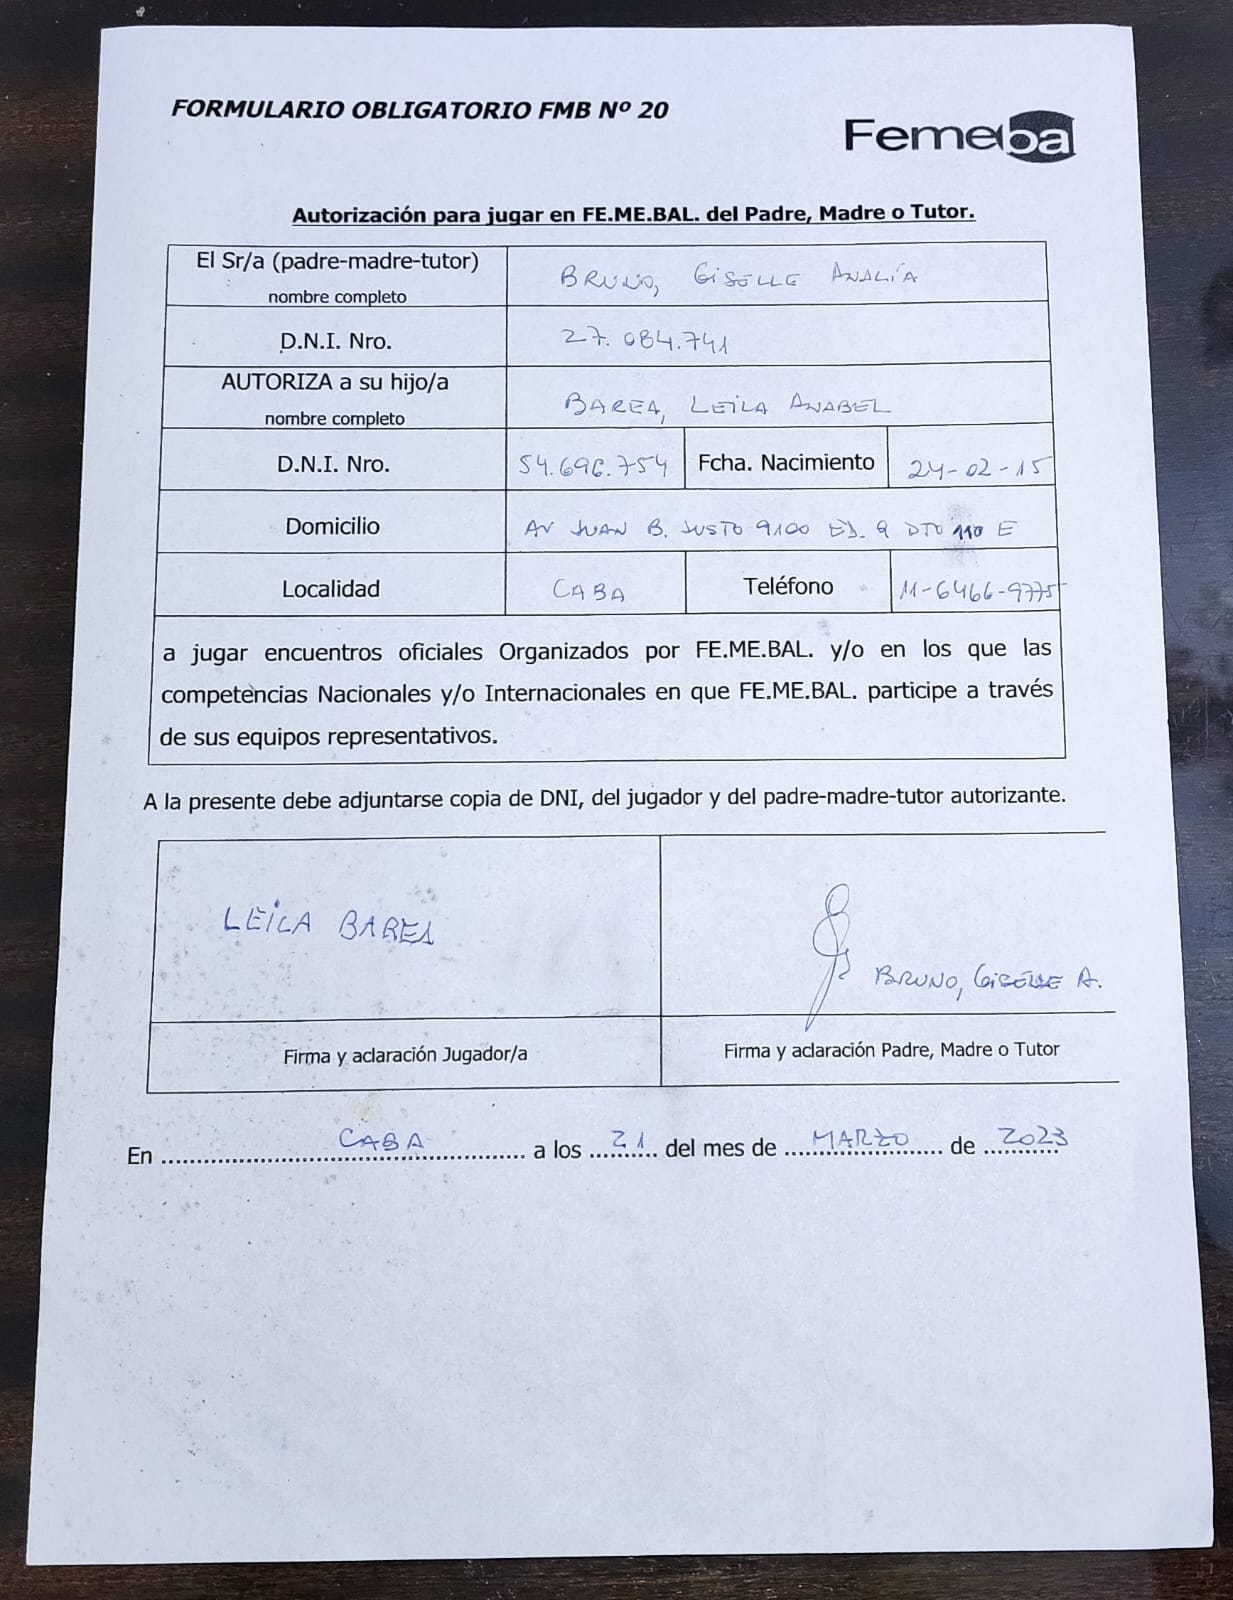 FORMULARIO OBLIGATORIO FMB Nº 20
Femeba
Autorización para jugar en FE.ME.BAL. del Padre, Madre o Tutor.
El Sr/a (padre-madre-tutor) nombre completo BRUNO, GISELLE ANALÍA
D.N.I. Nro. 27.084.741
AUTORIZA a su hijo/a nombre completo BAREA, LEILA ANABEL
D.N.I. Nro. 54.696.754 Fcha. Nacimiento 24-02-15
Domicilio AV JUAN B. JUSTO 9100 ED. 9 DTO 110 E
Localidad CABA Teléfono 11-6466-9775
a jugar encuentros oficiales Organizados por FE.ME.BAL. y/o en los que las
competencias Nacionales y/o Internacionales en que FE.ME.BAL. participe a través
de sus equipos representativos.
A la presente debe adjuntarse copia de DNI, del jugador y del padre-madre-tutor autorizante.
LEILA BAREA
BRUNO, GISELLE A.
Firma y aclaración Jugador/a Firma y aclaración Padre, Madre o Tutor
En CABA a los 21 del mes de MARZO de 2023